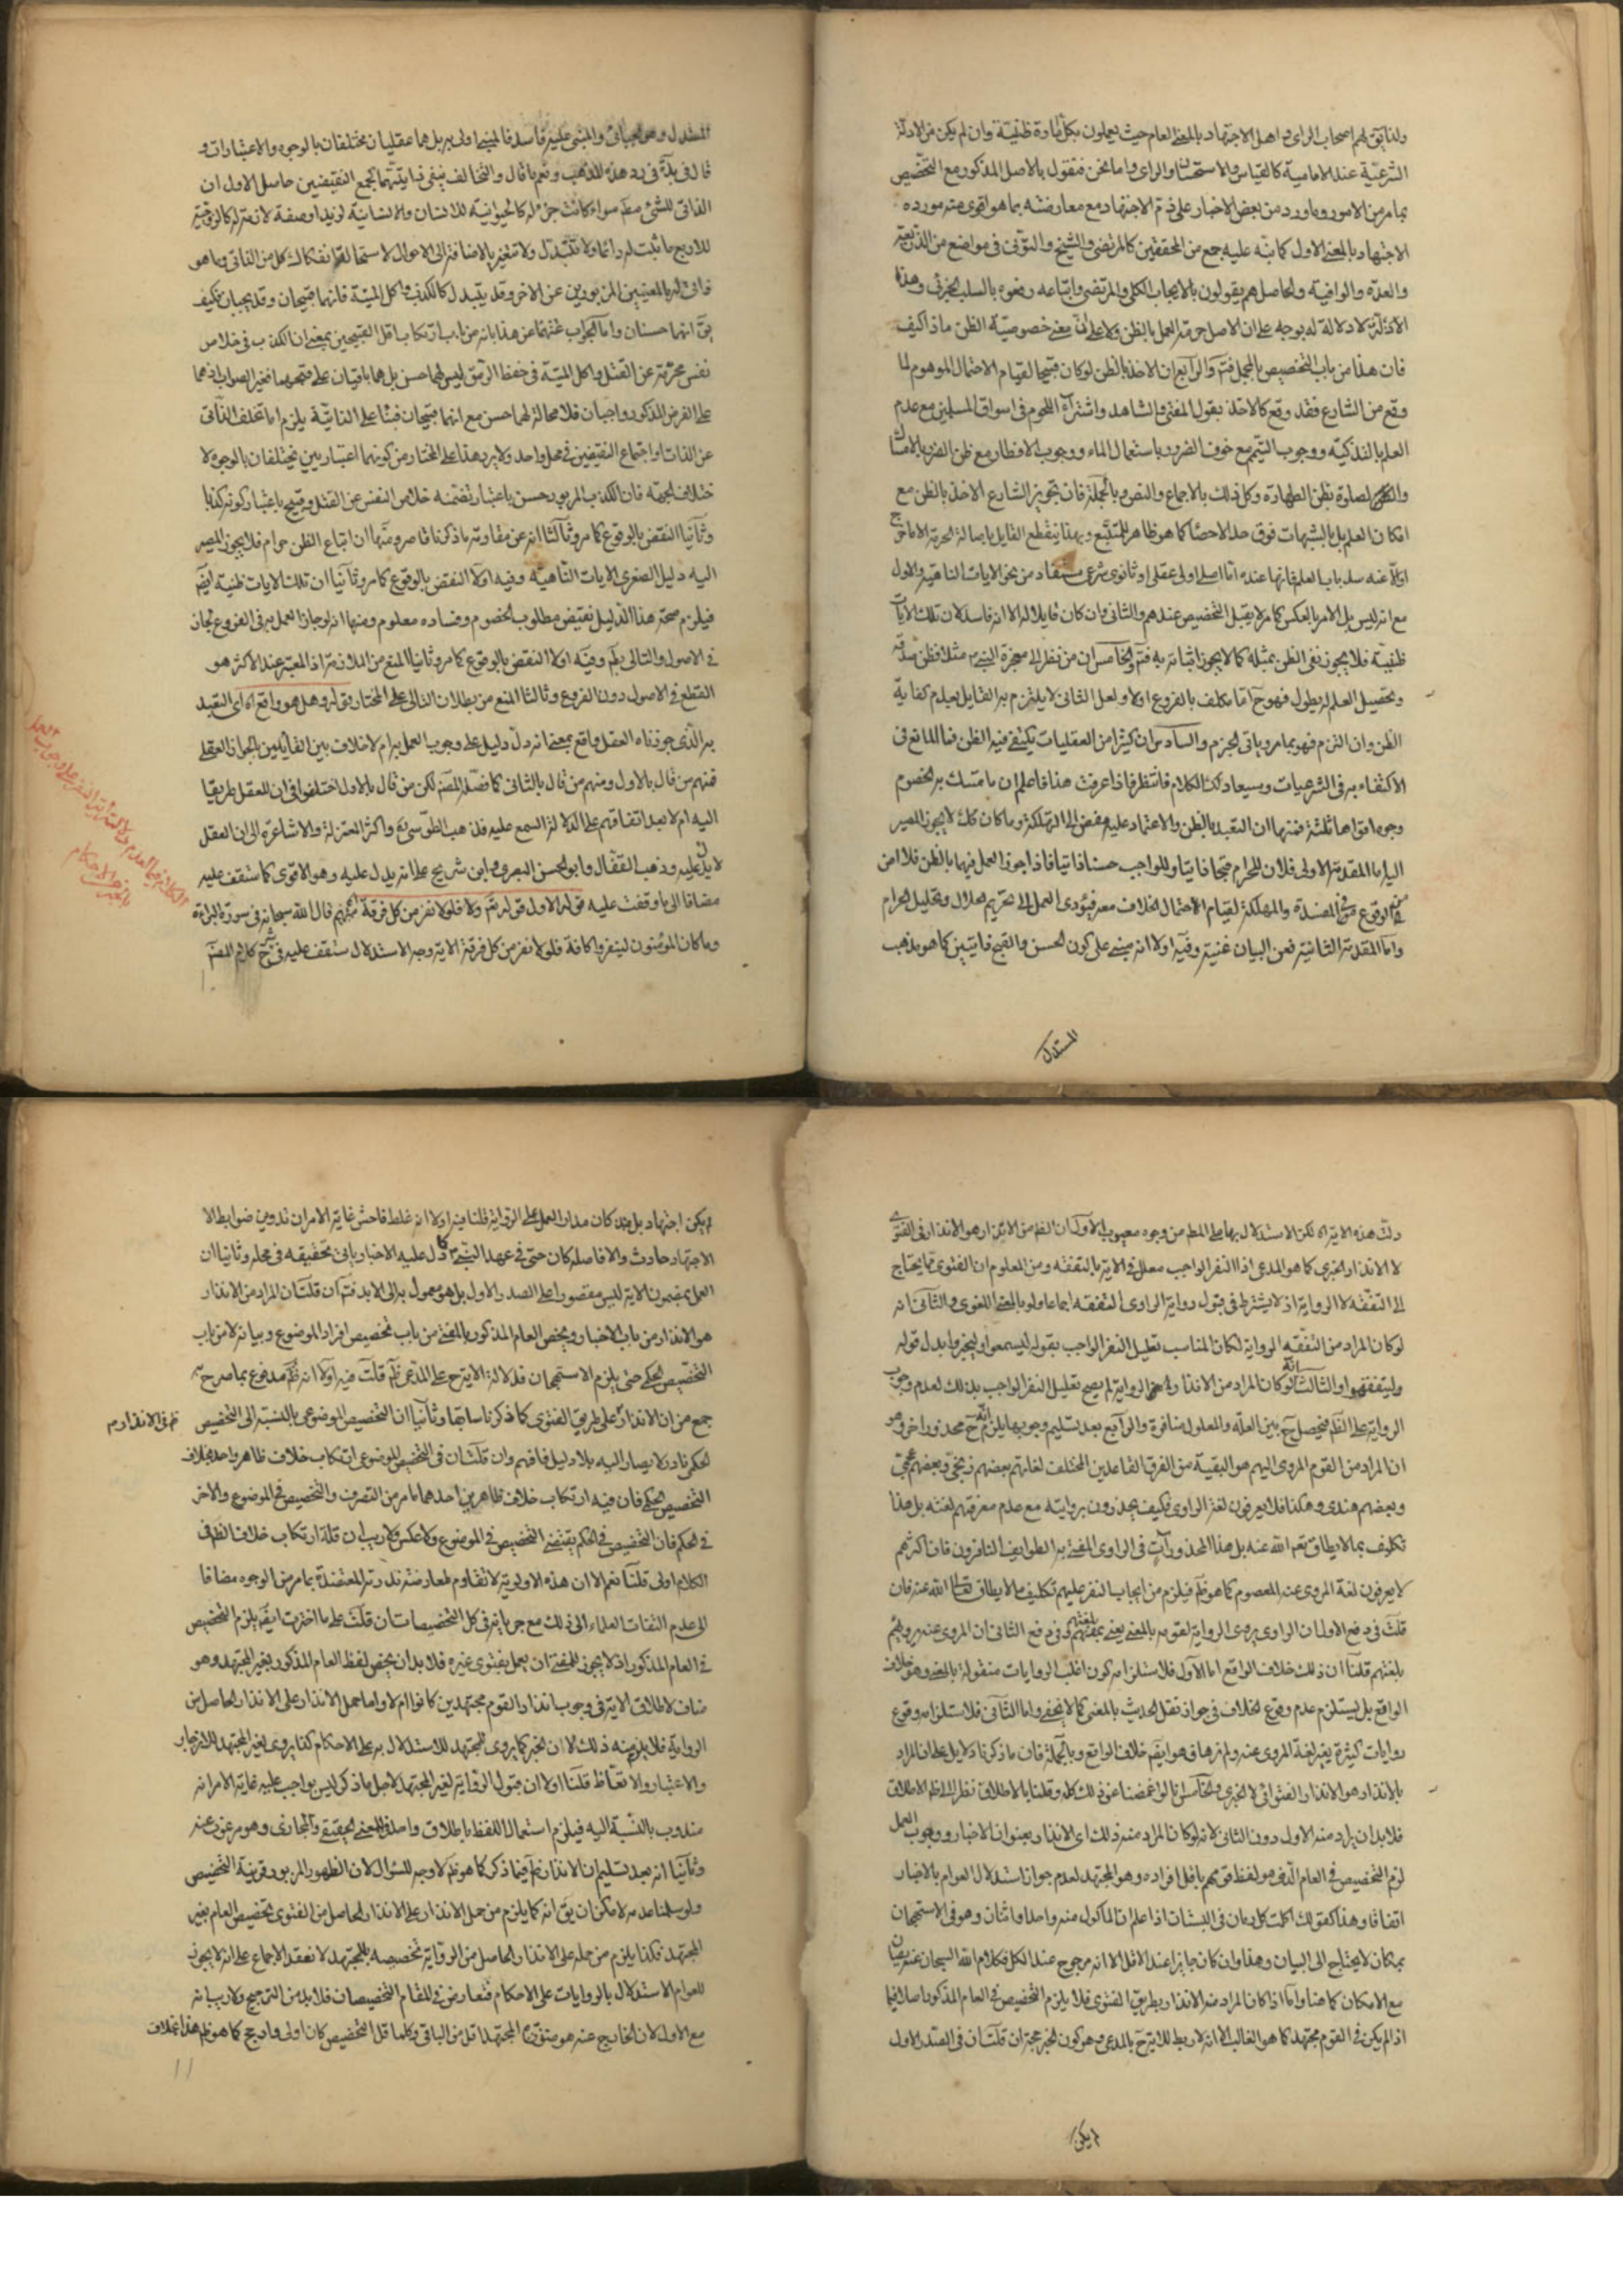 ولذا يقال لهم اصحاب الراى واهل الاجتهاد بالمعنى العام حيث يعملون بكل امارة ظنية وان لم يكن من الادلة
الشرعية عند الامامية كالقياس والاستحسان والراى واما نحن فنقول بالاصل المذكور مع التخصيص
بما مر من الامور وما ورد من بعض الاخبار على ذم الاجتهاد مع معارضته بما هو اقوى منه مورده
الاجتهاد بالمعنى الاول كما نبه عليه جمع من المحققين كالمرتضى والشيخ والتونى فى مواضع من الذريعة
والعدة والوافية والحاصل هم يقولون بالايجاب الكلى والمرتضى واتباعه ونحوه بالسلب الجزئى وهذه
الادلة لا دلالة له بوجه على ان الاصل حرمة العمل بالظن ولا على نفى خصوصية الظن ماذا كيف
فان هذا من باب التخصيص بالمجمل فتم والرابع ان الاخذ بالظن لو كان قبيحا لقيام الاحتمال الموهوم لما
وقع من الشارع فقد وقع كالاخذ بقول المفتى والشاهد واشتراء اللحوم فى اسواق المسلمين مع عدم
العلم بالتذكية ووجوب التيمم مع خوف الضرر باستعمال الماء ووجوب الافطار مع ظن الضرر بالامساك
لصلوة بظن الطهارة وكل ذلك بالاجماع والنص وبالجملة فان تجويز الشارع الاخذ بالظن مع
امكان العلم بل بالشبهات فوق حد الاحصا كما هو ظاهر للمتتبع وبهذا ينقطع القايل باصالة الحرمة
عنه سد باب العلم فانها عنده اما اصل اولى عقلى او ثانوى شرعى مستفاد من نحو الايات الناهية والاول
مع انه ليس بل الامر بالعكس كما مر لا يقبل التخصيص عندهم والثانى وان كان قابلا له الا انه فاسد لان تلك الايات
ظنية فلا يجوز نفى الظن بمثله كما لا يجوز اثباته به فتم والخامس ان من نظر الى معجزة النبى ص مثلا فظن صدقه
وتحصيل العلم له يطول فهو ح اما مكلف بالفروع اولا ولعل الثانى لا يلتزم به القايل بعدم كفاية
الظن وان التزم فهو بما مر وياتى الجزم والسادس ان كثيرا من العقليات يكتفى فيه الظن فما المانع فى
الاكتفاء به فى الشرعيات وسيعاد لك الكلام فانتظر فاذا عرفت هذا فاعلم ان ما تمسك به الخصوم
وجوه اقواها ثلثة فمنها ان التعبد بالظن والاعتماد عليه مفض الى التهلكة وما كان كك لا يجوز المصير
اليه اما المقدمة الاولى فلان للحرام قبحا ذاتيا وللواجب حسنا ذاتيا فاذا جوز العمل فيها بالظن فلا امن
الوقوع فى المفسدة والمهلكة لقيام الاحتمال الخلاف معه فيؤدى العمل الى تحريم الحلال وتحليل الحرام
واما المقدمة الثانية فعن البيان غنية وفيه اولا انه مبنى على كون الحسن والقبح ذاتيين كما هو مذهب
المستدل
المستدل وهو والمبنى عليه فاسد فالمبنى اولى به بل هما عقليان مختلفان بالوجوه والاعتبارات و
قال فى فى رد هذا المذهب ونعم ما قال والتخالف ينفى ذاتيتهما الجمع النقيضين حاصل الاول ان
الذاتى للشئ مط سواء كانت جزء له كالحيوانية للانسان والانسانية لزيد او صفة لازمة له كالزوجية
للاربع ما ثبت له دائما ولا يتبدل ولا تتغير بالاضافة الى الاحوال لاستحالة انفكاك كل من الذاتى وما هو
ذاتى له بالمعنيين المزبورين عن الاخر وقد يتبدل كالكذب واكل الميتة فانهما قبيحان وقد يجبان فكيف
يق انهما حسنان واما الجواب عنهما عن هذا بانه من باب ارتكاب اقل القبيحين بمعنى ان الكذب فى خلاص
نفس محترمة عن القتل واكل الميتة فى حفظ الرمق ليس لهما حسن بل هما باقيان على قبحهما فغير الصواب اذ هما
على الفرض المذكور واجبان فلا محالة لهما حسن مع انهما قبيحان فبنا على الذاتية يلزم اما تخلف الذاتى
عن الذات او اجتماع النقيضين فى محل واحد ولا يرد هذا على المختار من كونهما اعتباريين يختلفان بالوجوه لا
ختلاف الجهة فان الكذب المزبور حسن باعتبار تضمنه خلاص النفس عن القتل وقبيح باعتبار كونه كذبا
وثانيا النقض بالوقوع كما مر وثالثا انه عن مقاومة ما ذكرنا قاصر ومنها ان اتباع الظن حرام فلا يجوز المصير
اليه دليل الصغرى الايات الناهية وفيه اولا النقض بالوقوع كما مر وثانيا ان تلك الايات ظنية ايضم
فيلزم صحة هذا الدليل نقيض مطلوب الخصوم وفساده معلوم ومنها انه لو جاز العمل به فى الفروع لجاز
فى الاصول والتالى بط وفيه اولا النقض بالوقوع كما مر وثانيا المنع من الملازمة اذ المعتبر عند الاكثر هو
القطع فى الاصول دون الفروع وثالثا المنع من بطلان التالى على المختار قوله وهل هو واقع اه اى التعبد
به الذى جوزناه العقل واقع بمعنى انه دل دليل على وجوب العمل به ام لا خلاف بين القائلين بالجواز العقلى
فمنهم من قال بالاول ومنهم من قال بالثانى كما فصله المصنف لكن من قال بالاول اختلفوا فى ان للعقل طريقا
اليه ام لا بعد اتفاقهم على الدلالة السمع عليه فذهب الطوسى ره واكثر المعتزلة والاشاعرة الى ان العقل
لا يدل عليه وذهب القفال وابو الحسن البصرى وابن شريح على انه يدل عليه وهو الاقوى كما ستقف عليه
مضافا الى ما وقفت عليه قوله الاول قوله تعم ولا فلولا نفر من كل فرقة منهم قال الله سبحانه فى سورة البراءة
وما كان المؤمنون لينفروا كافة فلولا نفر من كل فرقة الاية وجه الاستدلال ستقف عليه فى شرح كلام المصنف
دلت هذه الاية اه لكن الاستدلال بها على المط من وجوه معيوب الاول ان الظ من الانذار هو الانذار فى الفتوى
لا الانذار الخبرى كما هو المدعى اذ النفر الواجب معلل فى الاية بالتفقه ومن المعلوم ان الفتوى مما يحتاج
الى التفقه لا الرواية اذ لا يشترط فى قبول رواية الراوى التفقه اجماعا ولو بالمعنى اللغوى والثانى انه
لو كان المراد من التفقه الرواية لكان المناسب تعليل النفر الواجب بقوله ليسمعوا وليخبروا بدل قوله
وليتفقهوا والثالث انه لو كان المراد من الانذار الرواية لم يصح تعليل النفر الواجب بذلك لعدم وجوب
الرواية على الظ فيحصل ح بين العلة والمعلول منافرة والرابع بعد تسليم وجوبها يلزم ح محذور اخر وهو
ان المراد من القوم المروى اليهم هو البقية من الفرق القاعدين المختلف لغاتهم بعضهم زنجى وبعضهم عجمى
وبعضهم هندى وهكذا فلا يعرفون لغة الراوى فكيف يحذرون بروايته مع عدم معرفتهم لغته بل هذا
تكليف بما لا يطاق نعم الله عنه بل هذا المحذور آت فى الراوى المخبر به الطوايف النافرون فان اكثرهم
لا يعرفون لغة المروى عنه المعصوم كما هو ظ فيلزم من ايجاب النفر عليهم تكليف ما لا يطاق تعالى الله عنه فان
قلت فى دفع الاول ان الراوى يروى الرواية لقومه بالمعنى يعنى بلغتهم وفى دفع الثانى ان المروى عنه يرويهم
بلغتهم قلنا ان ذلك خلاف الواقع اما الاول فلاستلزامه كون اغلب الروايات منقولة بالمعنى وهو خلاف
الواقع بل يستلزم عدم وقوع الخلاف فى جواز نقل الحديث بالمعنى كما لا يخفى واما الثانى فلاستلزامه وقوع
روايات كثيرة بغير لغة المروى عنه ولم نرها فهو ايضم خلاف الواقع وبالجملة فان ما ذكرنا دلايل على ان المراد
بالانذار هو الانذار الفتوائى لا الخبرى والخامس انا لو اغمضنا عن ذلك كله وقلنا بالاطلاق نظرا الى ظ الاطلاق
فلا بد ان يراد منه الاول دون الثانى لانه لو كان المراد منه ذلك اى الانذار بعنوان الاخبار ووجوب العمل
لزم التخصيص فى العام الذى هو لفظ قومهم باقل افراده وهو المجتهد لعدم جواز استدلال العوام بالاخبار
اتفاقا وهذا كقولك اكلت كل رمان فى البستان اذا علم ان الماكول منه واحد او اثنان وهو فى الاستهجان
بمكان لا يحتاج الى البيان وهذا وان كان جايزا عند الاقل الا انه مرجوح عند الكل فكلام الله السبحان عنه يصان
مع الامكان كما هنا واما اذا كان المراد منه الانذار بطريق الفتوى فلا يلزم التخصيص فى العام المذكور اصلا فيما
اذ لم يكن فى القوم مجتهد كما هو الغالب الا انه لا ربط للاية ح بالمدعى وهو كون الخبر حجة ان قلت ان فى الصدر الاول
لم يكن
لم يكن اجتهاد بل كان مدار العمل على الرواية قلنا فيه اولا انه غلط فاحش غاية الامر ان تدوين ضوابط الا
الاجتهاد حادث والا فاصله كان حتى فى عهد النبى ص كما دل عليه الاخبار ياتى تحقيقه فى محله وثانيا ان
العمل بمضمون الاية ليس مقصورا على الصدر الاول بل هو معمول به الى الابد فتم ان قلت ان المراد من الانذار
هو الانذار من باب الاخبار ويخص العام المذكور بالمجتهد من باب تخصيص افراد الموضوع وبيانه لا من باب
التخصيص الحكمى حتى يلزم الاستهجان فدلالة الاية ح على المدعى ظ قلت فيه اولا انه ظ مدفوع بما صرح به
جمع من ان الانذار على طريق الفتوى كما ذكرنا سابقا وثانيا ان التخصيص الموضوعى بالنسبة الى التخصيص
ظ فى الانذار م
الحكمى نادر لا يصار اليه بلا دليل فافهم وان قلت ان فى التخصيص الموضوعى ارتكاب خلاف ظاهر واحد بخلاف
التخصيص الحكمى فان فيه ارتكاب خلاف ظاهرين احدهما ما مر من التصرف والتخصيص فى الموضوع والاخر
فى الحكم فان التخصيص فى الحكم يقتضى التخصيص فى الموضوع ولا عكس ولا ريب ان قلة ارتكاب خلاف الظ فى
الكلام اولى قلنا نعم الا ان هذه الاولوية لا تقاوم لمعارضة ندرته المعتضدة بما مر من الوجوه مضافا
الى عدم التفات العلماء الى ذلك مع جريانه فى كل التخصيصات ان قلت على ما اخترت ايضم يلزم التخصيص
فى العام المذكور اذ لا يجوز للمفتى ان يعمل بفتوى غيره فلا بد ان يخص لفظ العام المذكور بغير المجتهد وهو
مناف لاطلاق الاية فى وجوب انذار القوم مجتهدين كانوا ام لا واما حمل الانذار على الانذار الحاصل من
الرواية فلا يلزمه ذلك لان الخبر كما يروى للمجتهد للاستدلال به على الاحكام كذا يروى لغير المجتهد للانزجار
والاعتبار والاتعاظ قلنا اولا ان قبول الرواية لغير المجتهد لاجل ما ذكر ليس بواجب عليه غاية الامر انه
مندوب بالنسبة اليه فيلزم استعمال اللفظ باطلاق واحد فى المعنى الحقيقى والمجازى وهو مرغوب عنه
وثانيا انه بعد تسليم ان الانذار ظ فيما ذكر كما هو ظ لا وجه للسؤال لان الظهور المزبور قرينة التخصيص
ولو سلمنا عدمه لامكن ان يق انه كما يلزم من حمل الانذار على الانذار الحاصل من الفتوى تخصيص العام بغير
المجتهد فكذا يلزم من حمله على الانذار الحاصل من الرواية تخصيصه بالمجتهد لانعقد الاجماع على انه لا يجوز
للعوام الاستدلال بالروايات على الاحكام فتعارض فى المقام التخصيصان فلا بد من الترجيح ولا ريب انه
مع الاول لان الخارج عنه هو المجتهد اقل من الباقى وكلما قل التخصيص كان اولى وارجح كما هو ظ هذا بخلاف